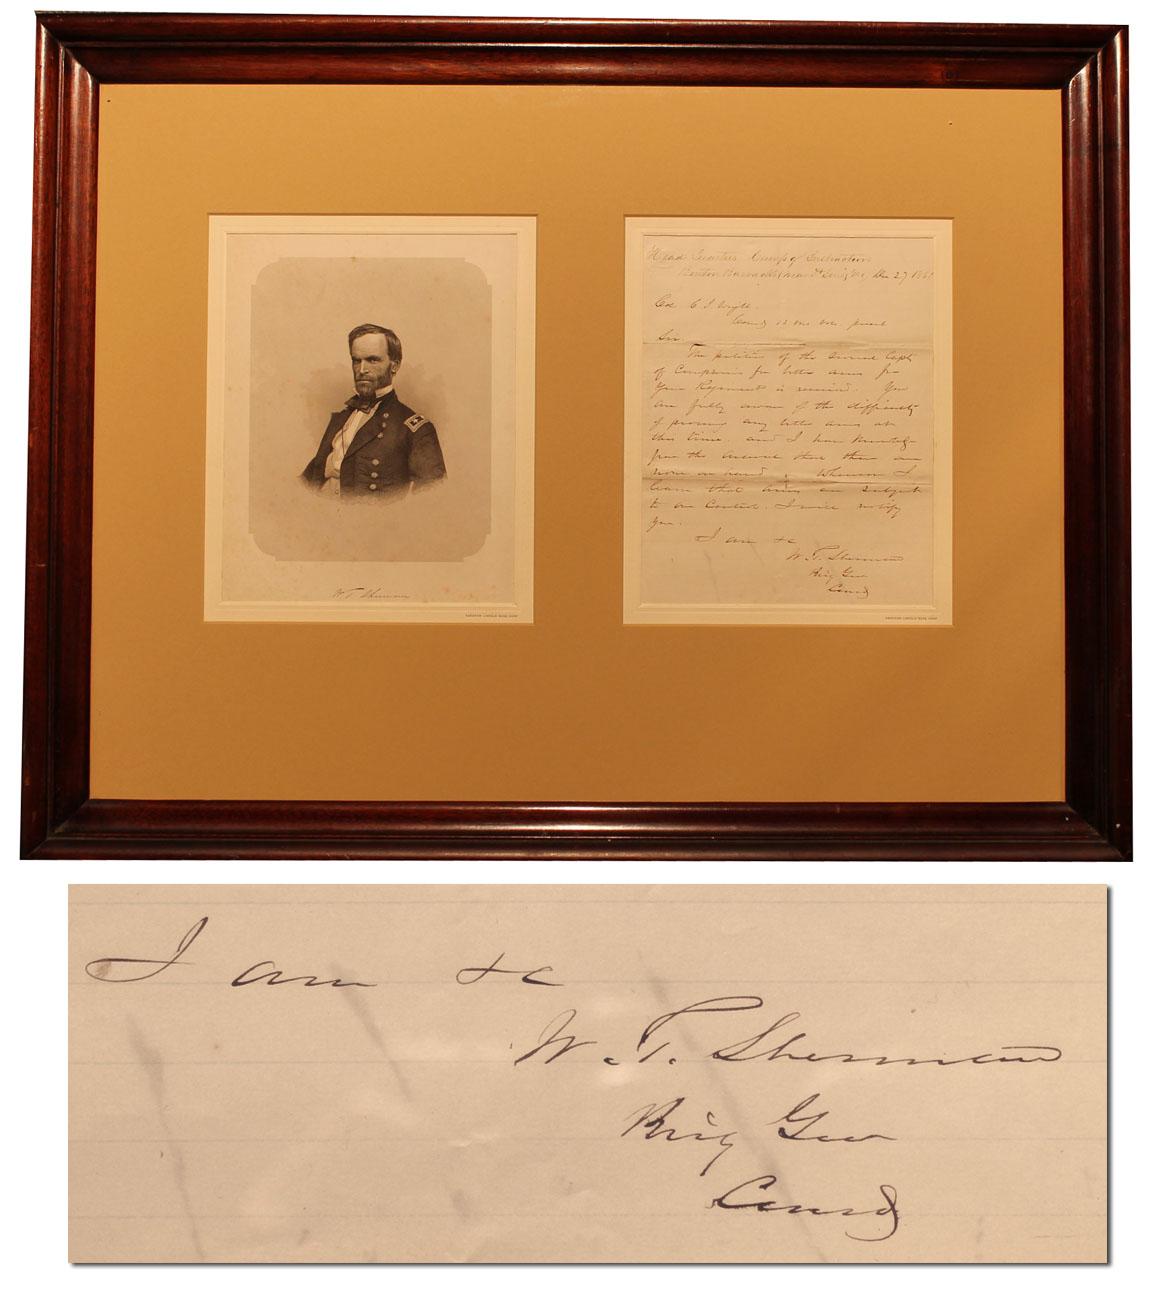 Head Quarters Camp of Instruction
Benton Barracks (near St Louis, Mo) Dec 27 1861
Col C. J. Wright.
Comdg 13 Mo Vols. present
Sir
The petition of the several Capts
of Companies for better arms for
your Regiment is received. You
are fully aware of the difficulty
of procuring any better arms at
this time. and I have
from the that there are
none on hand. Whenever I
learn that arms are subject
to our Control. I will notify
you.
I am &c
W. T. Sherman
Brig Gen
Comdg
W T Sherman
ABRAHAM LINCOLN BOOK SHOP
ABRAHAM LINCOLN BOOK SHOP
I am &c
W. T. Sherman
Brig Gen
Comdg